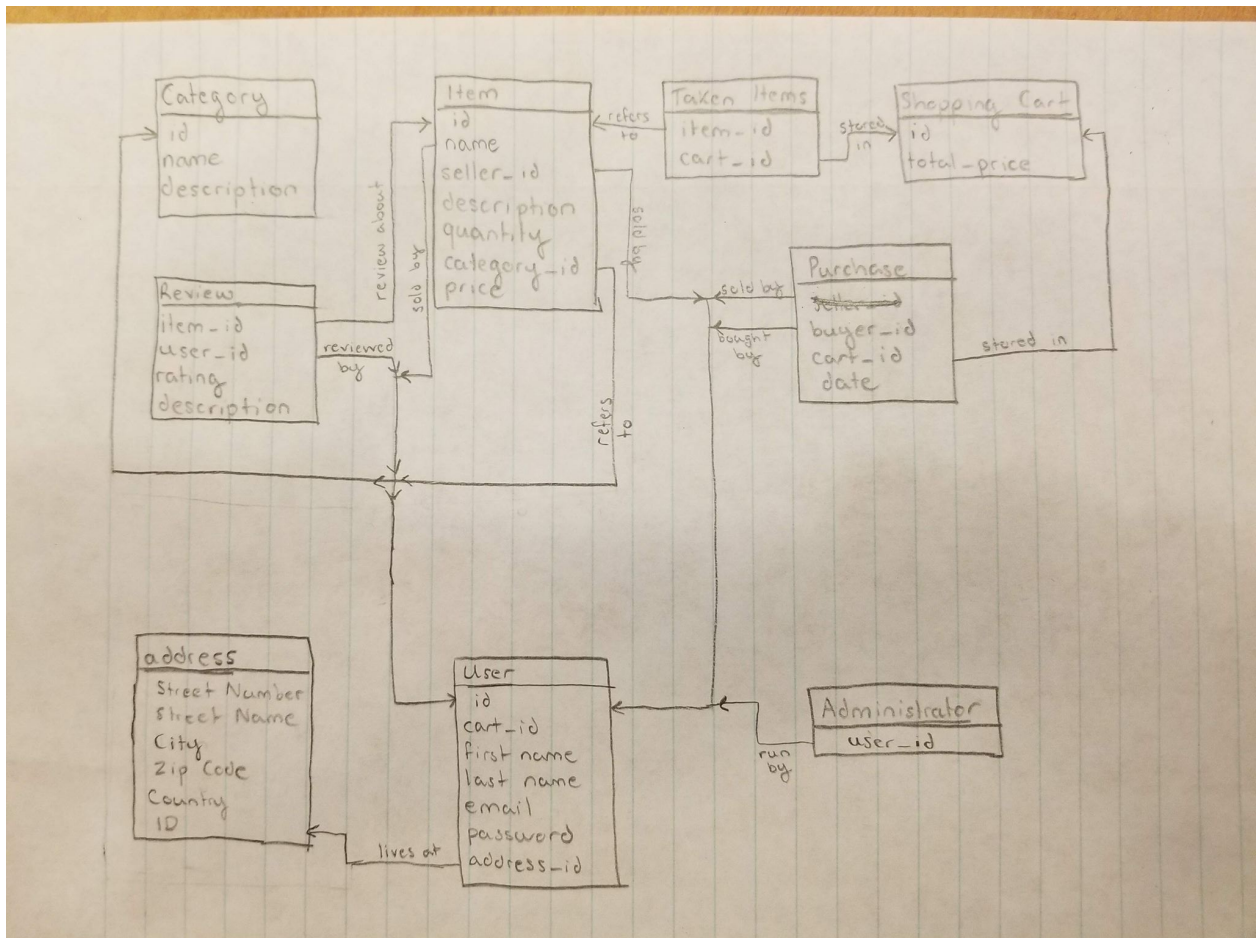 Category
id
name
description
Item
id
name
seller_id
description
quantity
category_id
price
Taken Items
item_id
cart_id
Shopping Cart
id
total_price
refers
to
stored
in
review about
sold by
sold by
Review
item_id
user_id
rating
description
reviewed
by
Purchase
seller_id
buyer_id
cart_id
date
sold by
bought
by
stored in
refers
to
address
Street Number
Street Name
City
Zip Code
Country
ID
User
id
cart_id
first name
last name
email
password
address_id
lives at
Administrator
user_id
run
by